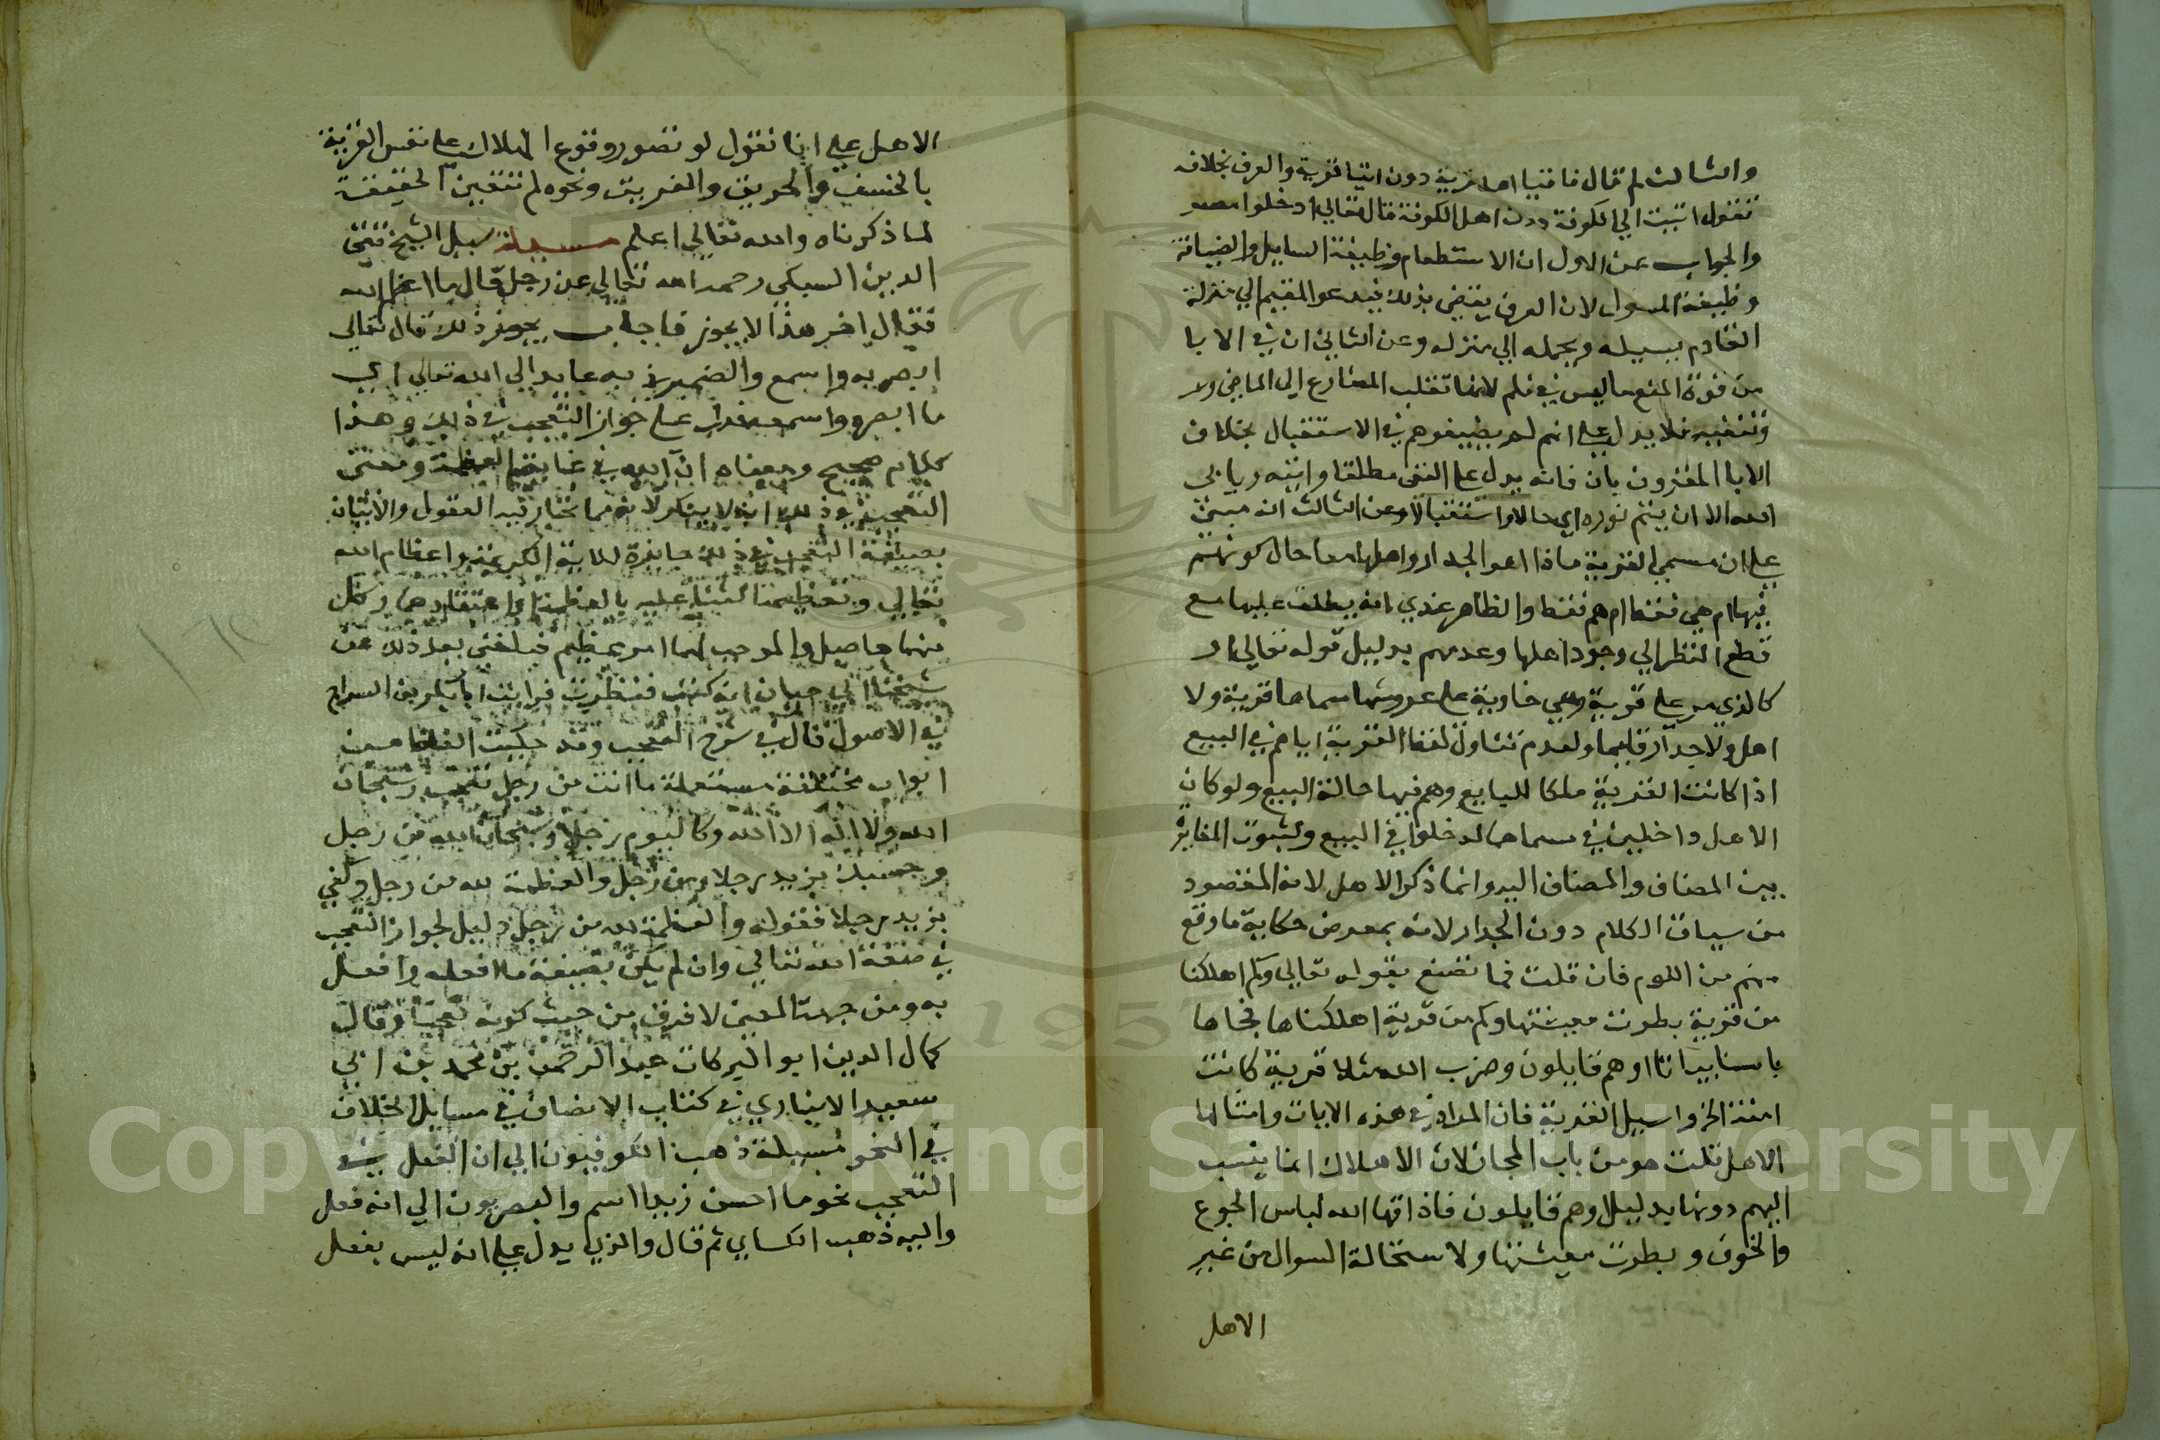 والثالث لم قال فاتيا اهل قرية دون اتيا قرية والعرف بخلافه
تقول اتيت الي الكوفة دون اهل الكوفة قال تعالي ادخلوا مصر
والجواب عن الاول ان الاستطعام وظيفة السايل والضيافة
وظيفة المسول لان العرف يقتضي بذلك فيدعو المقيم الي منزلة
القادم بسيله ويحمله الي منزله وعن الثاني ان في الابا
من قوة المنع ما ليس في فلم لانها تقلب المضارع الي الماضي ولا
وتنفيه فلا يدل علي انهم لم يضيفوهم في الاستقبال بخلاف
الابا المقرون بان فانه يدل علي النفي مطلقا وايته ويابي
الله الا ان يتم نوره اي حالا واستقبالا وعن الثالث انه مبني
علي ان مسمي القرية ماذا اهو الجدار واهلها معا حال كونهم
فيها ام هي فقط ام هم فقط والظاهر عندي انه يطلق عليها مع
قطع النظر الي وجود اهلها وعدمهم بدليل قوله تعالي او
كالذي مر علي قرية وهي خاوية علي عروشها سماها قرية ولا
اهل ولا جدار قايما ولعدم تناول لفظ القرية اياهم في البيع
اذا كانت القرية ملكا للبايع وهم فيها حالة البيع ولو كان
الاهل داخلين في مسماها لدخلوا في البيع ولثبوت المغايرة
بين المضاف والمضاف اليه وانما ذكر الاهل لانه المقصود
من سياق الكلام دون الجدار لانه بمعرض حكاية ما وقع
منهم من اللوم فان قلت فما تصنع بقوله تعالي وكم اهلكنا
من قرية بطرت معيشتها وكم من قرية اهلكناها فجاها
باسنا بياتا او هم قايلون وضرب الله مثلا قرية كانت
امنة الخ واسيل القرية فان المراد في هذه الايات وامثالها
الاهل قلت هو من باب المجاز لان الاهلاك انما ينسب
اليهم دونها بدليل او هم قايلون فاذاقها الله لباس الجوع
والخوف وبطرت معيشتها ولاستحالة السوال من غير
الاهل
الاهل علي انا نقول لو تصور وقوع الهلاك علي نفس القرية
بالخسف والحريق والغريق ونحوه لم تتعين الحقيقة
لما ذكرناه والله تعالي اعلم مسيلة سيل الشيخ تقي
الدين السبكي رحمه الله تعالي عن رجل قال ما اعظم الله
فقال اخر هذا لا يجوز فاجاب يجوز ذلك قال تعالي
ابصر به واسمع والضمير في به عايد الي الله تعالي اي
ما ابصره واسمعه فدل علي جواز التعجب في ذلك وهذا
كلام صحيح ومعناه ان الله في غاية العظمة ومعني
التعجب في ذلك انه لا ينكر لانه مما تحار فيه العقول والاتيان
بصيغة التعجب في ذلك جايزة للاية الكريمة واعظام الله
تعالي وتعظيمه الثنا عليه بالعظمة او اعتقادها وكل
منهما حاصل والموجب لهما امر عظيم فبلغني بعد ذلك عن
شيخنا ابي حيان انه كتب فنظرت فرايت ابا بكر بن السراج
في الاصول قال في شرح التعجب وقد حكيت الفاظ من
ابواب مختلفة مستعملة ما انت من رجل تعجب وسبحان
الله ولا اله الا الله وكاليوم رجلا وسبحان الله من رجل
وحسبك بزيد رجلا ومن رجل والعظمة لله من رجل وكفي
بزيد رجلا فقوله والعظمة لله من رجل دليل لجواز التعجب
في صفة الله تعالي وان لم يكن بصيغة ما افعله وافعل
به ومن جهة المعني لا فرق من حيث كونه تعجبا وقال
كمال الدين ابو البركات عبد الرحمن بن محمد بن ابي
سعيد الانباري في كتاب الانصاف في مسايل الخلاف
في النحو مسيلة ذهب الكوفيون الي ان افعل في
التعجب نحو ما احسن زيدا اسم والبصريون الي انه فعل
واليه ذهب الكساي ثم قال والذي يدل علي انه ليس بفعل
1957
Copyright © King Saud University